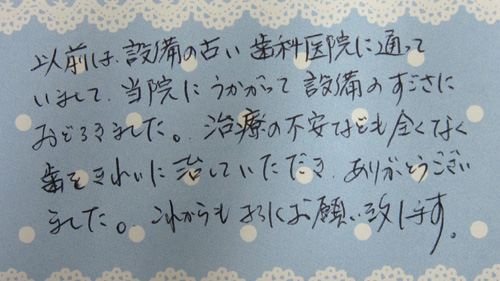 以前は、設備の古い歯科医院に通って
いまして、当院にうかがって設備のすごさに
おどろきました。治療の不安なども全くなく
歯をきれいに治していただき、ありがとうござい
ました。これからも よろしくお願い致します。